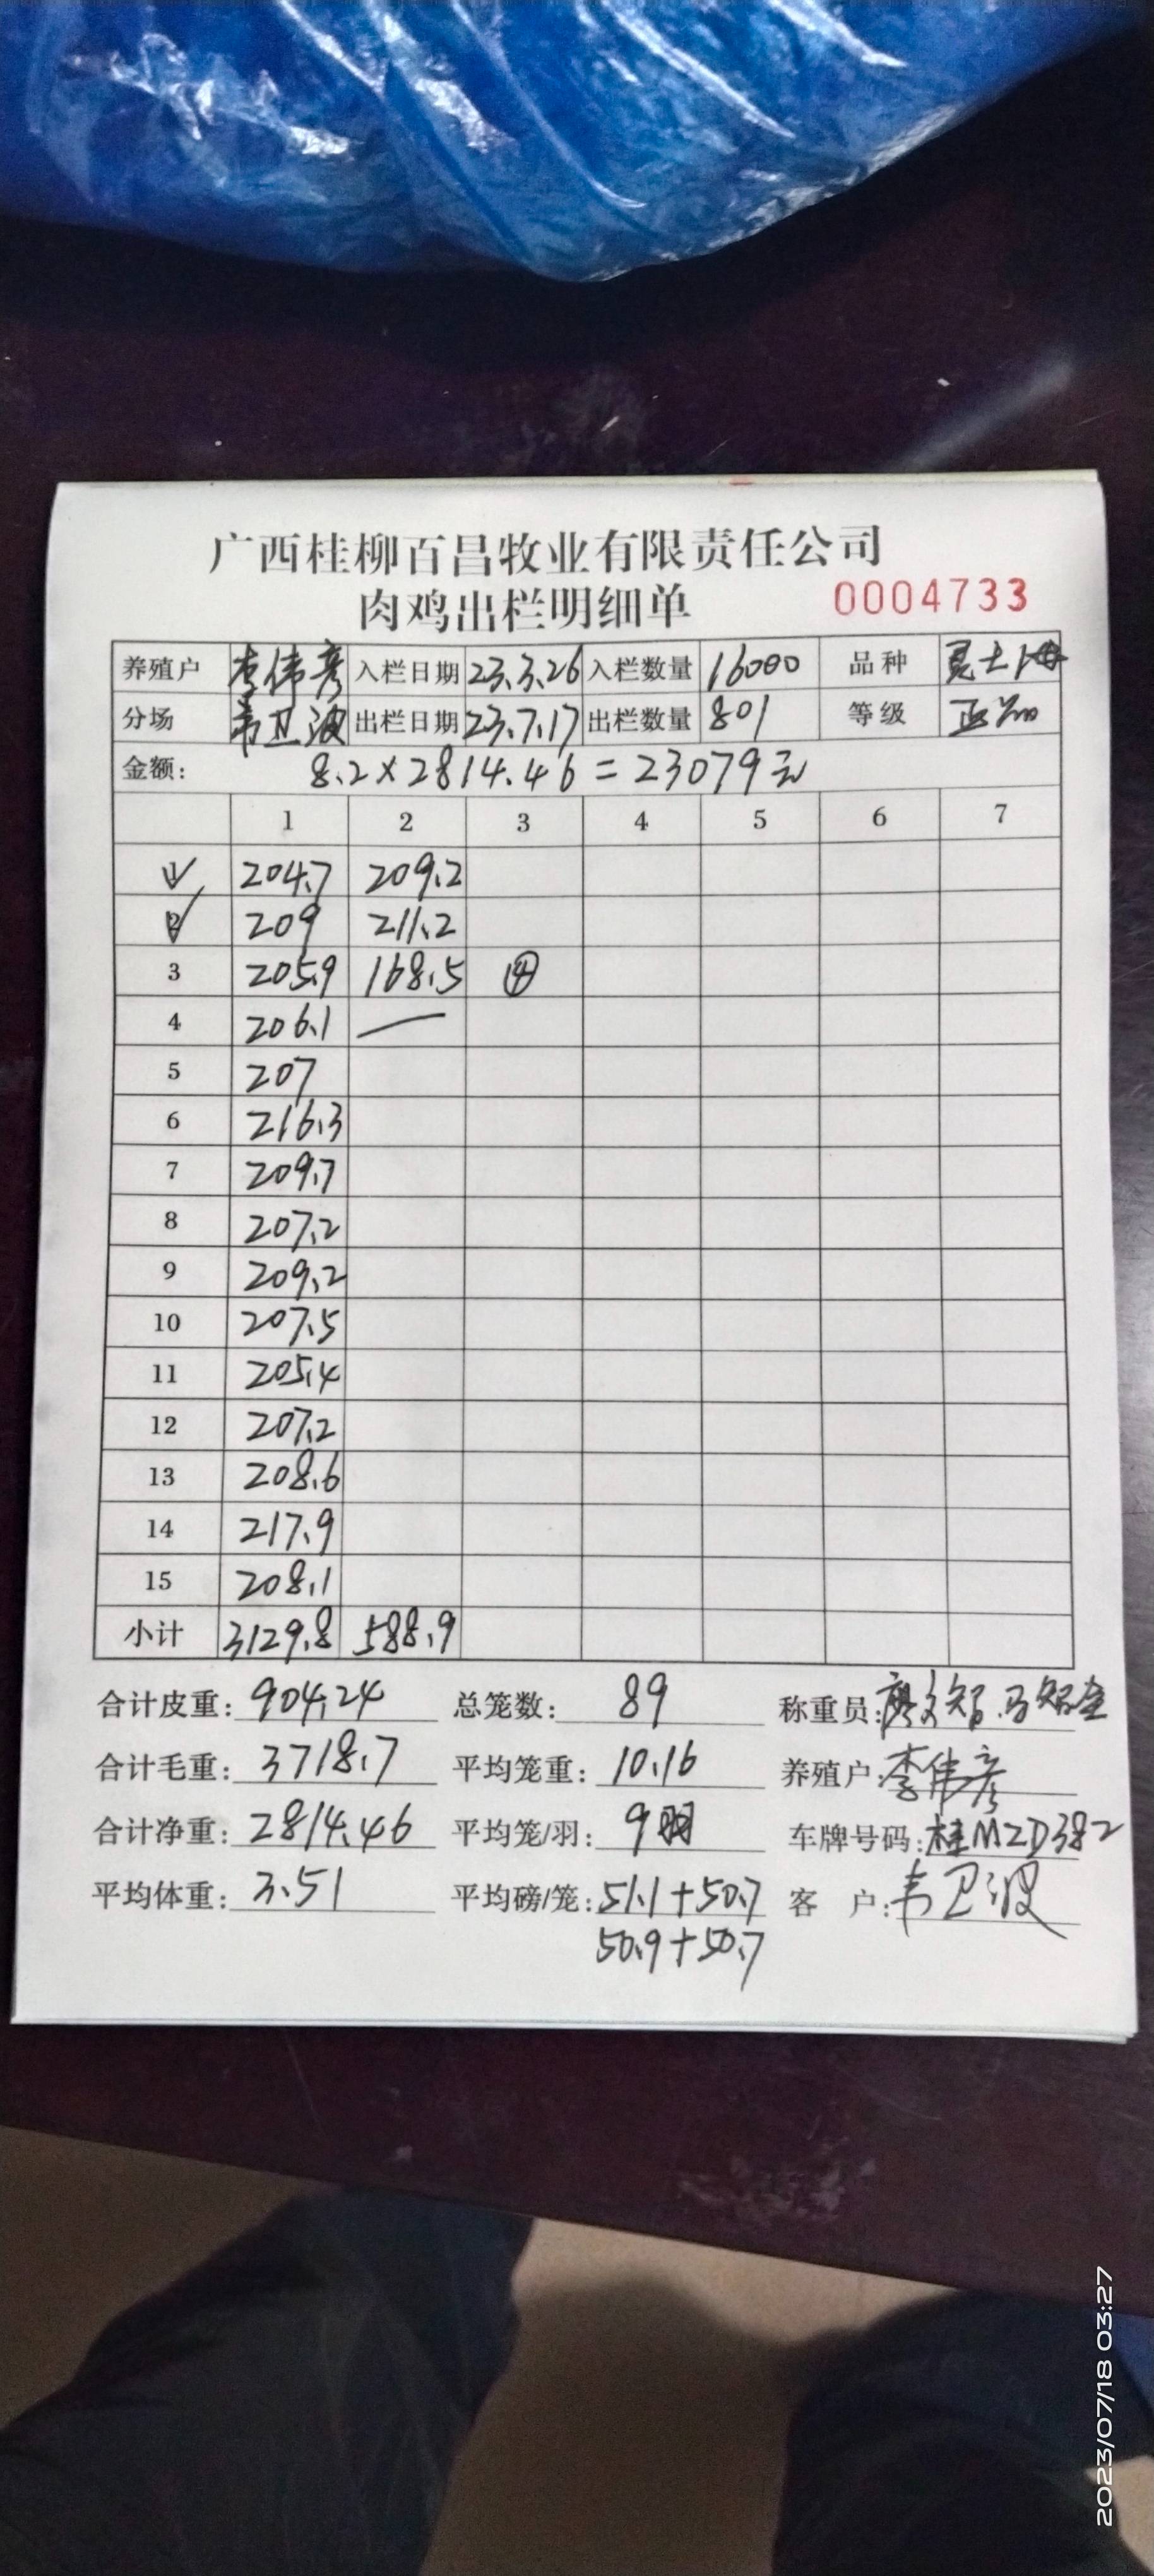 广西桂柳百昌牧业有限责任公司
肉鸡出栏明细单 0004733
养殖户 李伟彦 入栏日期 23.3.26 入栏数量 16000 品种
分场 韦卫波 出栏日期 23.7.17 出栏数量 801 等级 正品
金额: 8.2×2814.46=23079元
1 2 3 4 5 6 7
1 204.7 209.2
2 209 211.2
3 205.9 168.5 ④
4 206.1 —
5 207
6 216.3
7 209.7
8 207.2
9 209.2
10 207.5
11 205.4
12 207.2
13 208.6
14 217.9
15 208.1
小计 3129.8 588.9
合计皮重: 904.24 总笼数: 89 称重员: 廖文智.
合计毛重: 3718.7 平均笼重: 10.16 养殖户: 李伟彦
合计净重: 2814.46 平均笼/羽: 9羽 车牌号码: 桂MZD382
平均体重: 3.51 平均磅/笼: 51.1+50.7 客 户: 韦卫波
50.9+50.7
2023/07/18 03:27